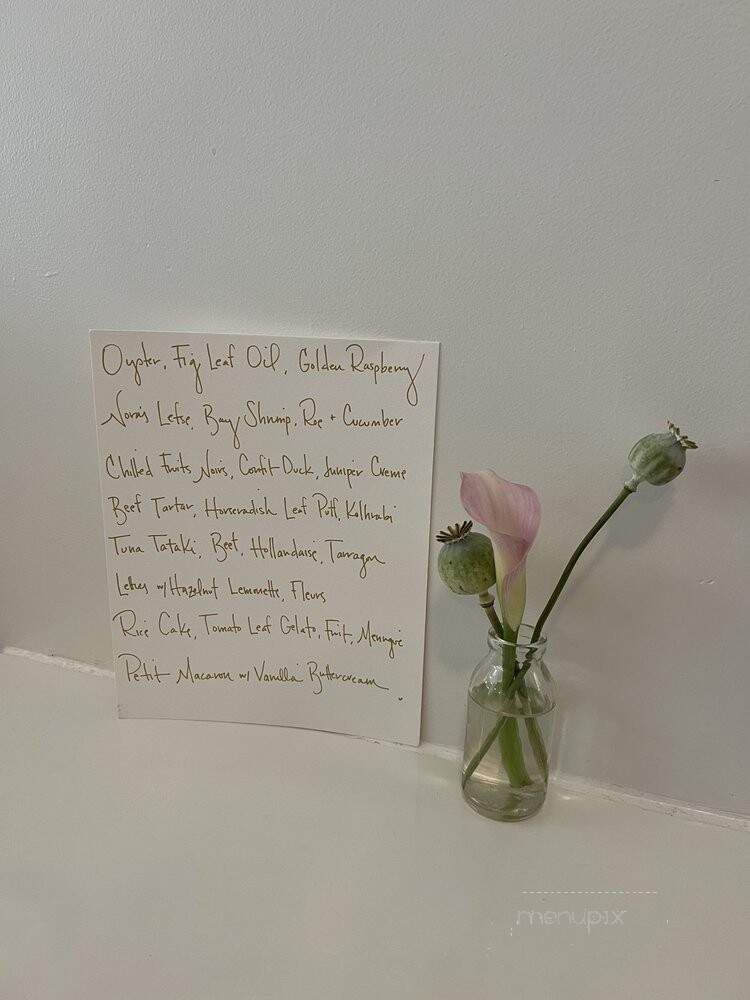 Oyster, Fig Leaf Oil, Golden Raspberry
Nora's Lefse, Bay Shrimp, Roe + Cucumber
Chilled Fruits Noirs, Confit Duck, Juniper Creme
Beef Tartar, Horseradish Leaf Puff, Kolhrabi
Tuna Tataki, Beet, Hollandaise, Tarragon
w/ Hazelnut Lemonette, Fleurs
Rice Cake, Tomato Leaf Gelato, Fruit, Meringue
Petit Macaron w/ Vanilla Buttercream
menupix